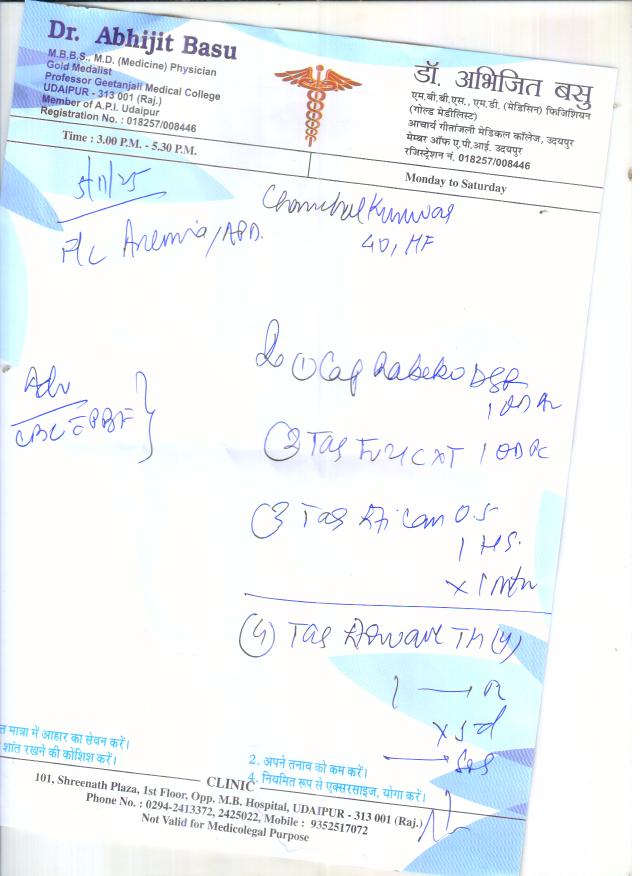 Dr. Abhijit Basu
M.B.B.S., M.D. (Medicine) Physician
Gold Medalist
Professor Geetanjali Medical College
UDAIPUR - 313 001 (Raj.)
Member of A.P.I. Udaipur
Registration No. : 018257/008446
Time : 3.00 P.M. - 5.30 P.M.
डॉ. अभिजित बसु
एम.बी.बी.एस., एम.डी. (मेडिसिन) फिजिशियन
(गोल्ड मेडीलिस्ट)
आचार्य गीतांजली मेडिकल कॉलेज, उदयपुर
मेम्बर ऑफ ए.पी.आई. उदयपुर
रजिस्ट्रेशन नं. 018257/008446
Monday to Saturday
5/11/25
Kunwar
40,
Anemia/APD.
① Cap Rabeko DSR
1 OD
Adv
CBC PBF
② Tab XT 1 OD PC
③ Tab 0.5
1 HS.
x 1 mth
④ Tab Th(4)
1
x 5 d
SOS
त मात्रा में आहार का सेवन करें।
शांत रखने की कोशिश करें।
2. अपने तनाव को कम करें।
4. नियमित रूप से एक्सरसाइज, योगा करें।
CLINIC
101, Shreenath Plaza, 1st Floor, Opp. M.B. Hospital, UDAIPUR - 313 001 (Raj.)
Phone No. : 0294-2413372, 2425022, Mobile : 9352517072
Not Valid for Medicolegal Purpose